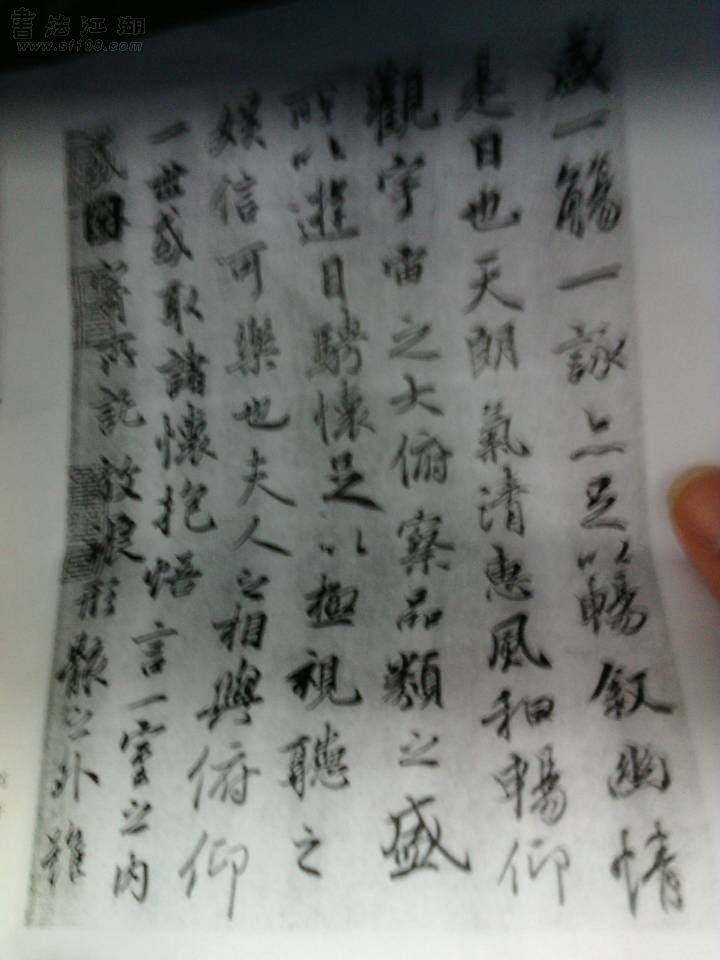 書法江湖
www.sf108.com
盛一觴一詠亦足以暢敘幽情
是日也天朗氣清惠風和暢仰
觀宇宙之大俯察品類之盛
所以遊目騁懷足以極視聽之
娛信可樂也夫人之相與俯仰
一世或取諸懷抱悟言一室之內
或因寄所託放浪形骸之外雖